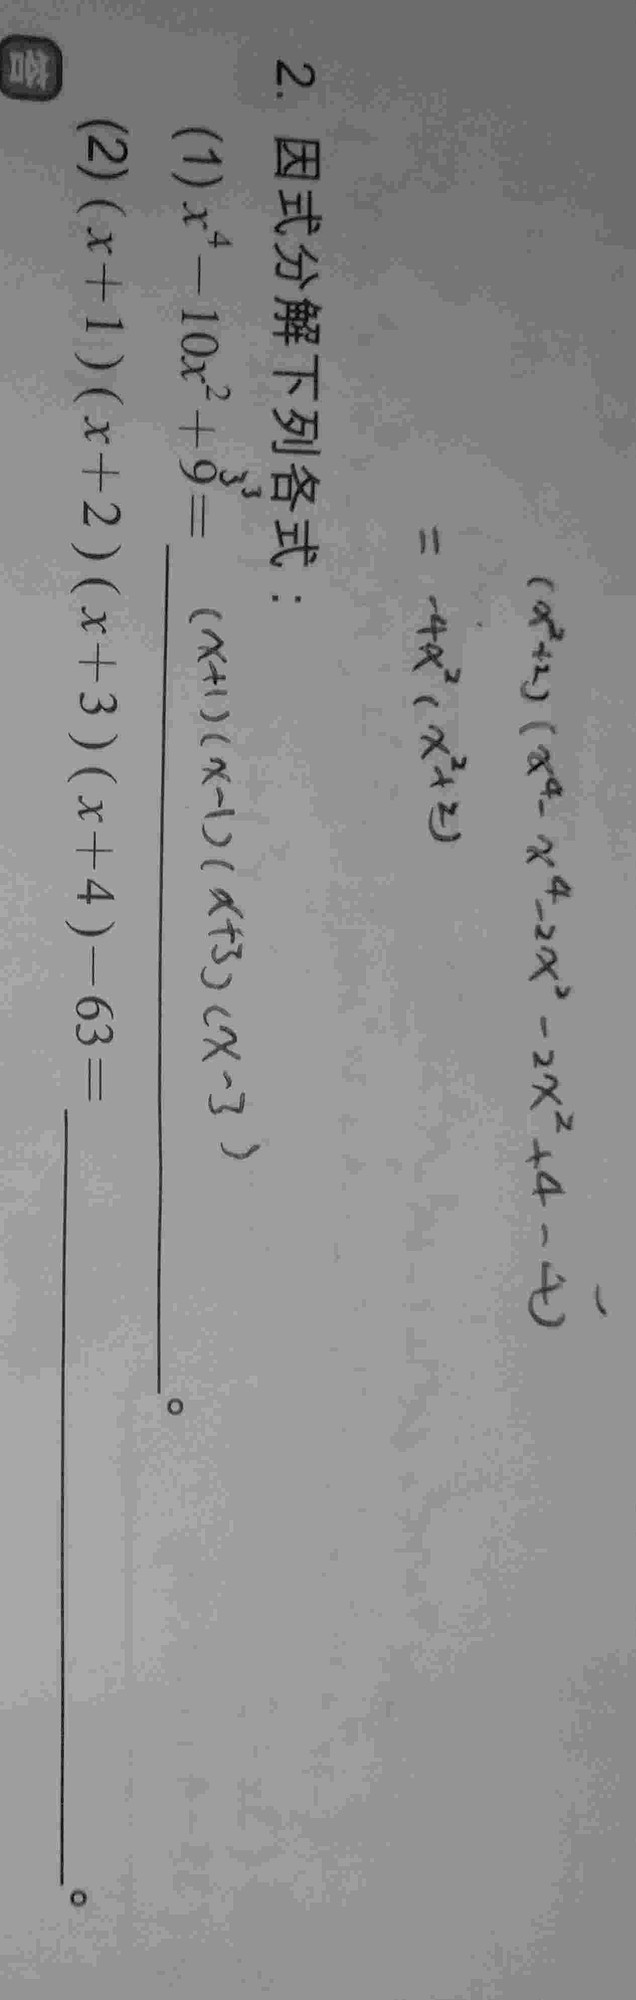 (x²+2)(x⁴-x⁴-2x²-2x²+4-4)
= -4x²(x²+2)
2. 因式分解下列各式：
(1) x⁴-10x²+9= (x+1)(x-1)(x+3)(x-3)。
3 3
(2) (x+1)(x+2)(x+3)(x+4)-63= 。
答